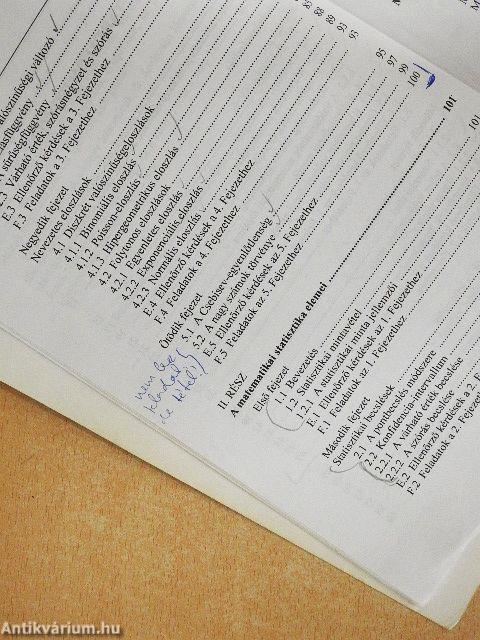 valószínűségi változó
sűrűségfüggvény
Várható érték, szórásnégyzet és szórás
E.3 Ellenőrző kérdések a 3. Fejezethez
F.3 Feladatok a 3. Fejezethez
Negyedik fejezet
Nevezetes eloszlások
4.1 Diszkrét valószínűségeloszlások
4.1.1 Binomiális eloszlás
4.1.2 Poisson-eloszlás
4.1.3 Hipergeometrikus eloszlás
4.2 Folytonos eloszlások
4.2.1 Egyenletes eloszlás
4.2.2 Exponenciális eloszlás
4.2.3 Normális eloszlás
E.4 Ellenőrző kérdések a 4. Fejezethez
F.4 Feladatok a 4. Fejezethez
Ötödik fejezet
5.1 A Csebisev-egyenlőtlenség
5.2 A nagy számok törvénye
E.5 Ellenőrző kérdések az 5. Fejezethez
F.5 Feladatok az 5. Fejezethez
88
89
93
93
95
97
99
100
nem lesz
feladat
de tétel!
II. RÉSZ
A matematikai statisztika elemei 101
Első fejezet
1.1 Bevezetés 101
1.2 Statisztikai mintavétel
1.2.1 A statisztikai minta jellemzői
E.1 Ellenőrző kérdések az 1. Fejezethez
F.1 Feladatok az 1. Fejezethez
Második fejezet
Statisztikai becslések
2.1 A pontbecslés módszere
2.2 Konfidencia-intervallum
2.2.1 A várható érték becslése
2.2.2 A szórás becslése
E.2 Ellenőrző kérdések a 2. F
F.2 Feladatok a 2. Fejezet
Antikvárium.hu